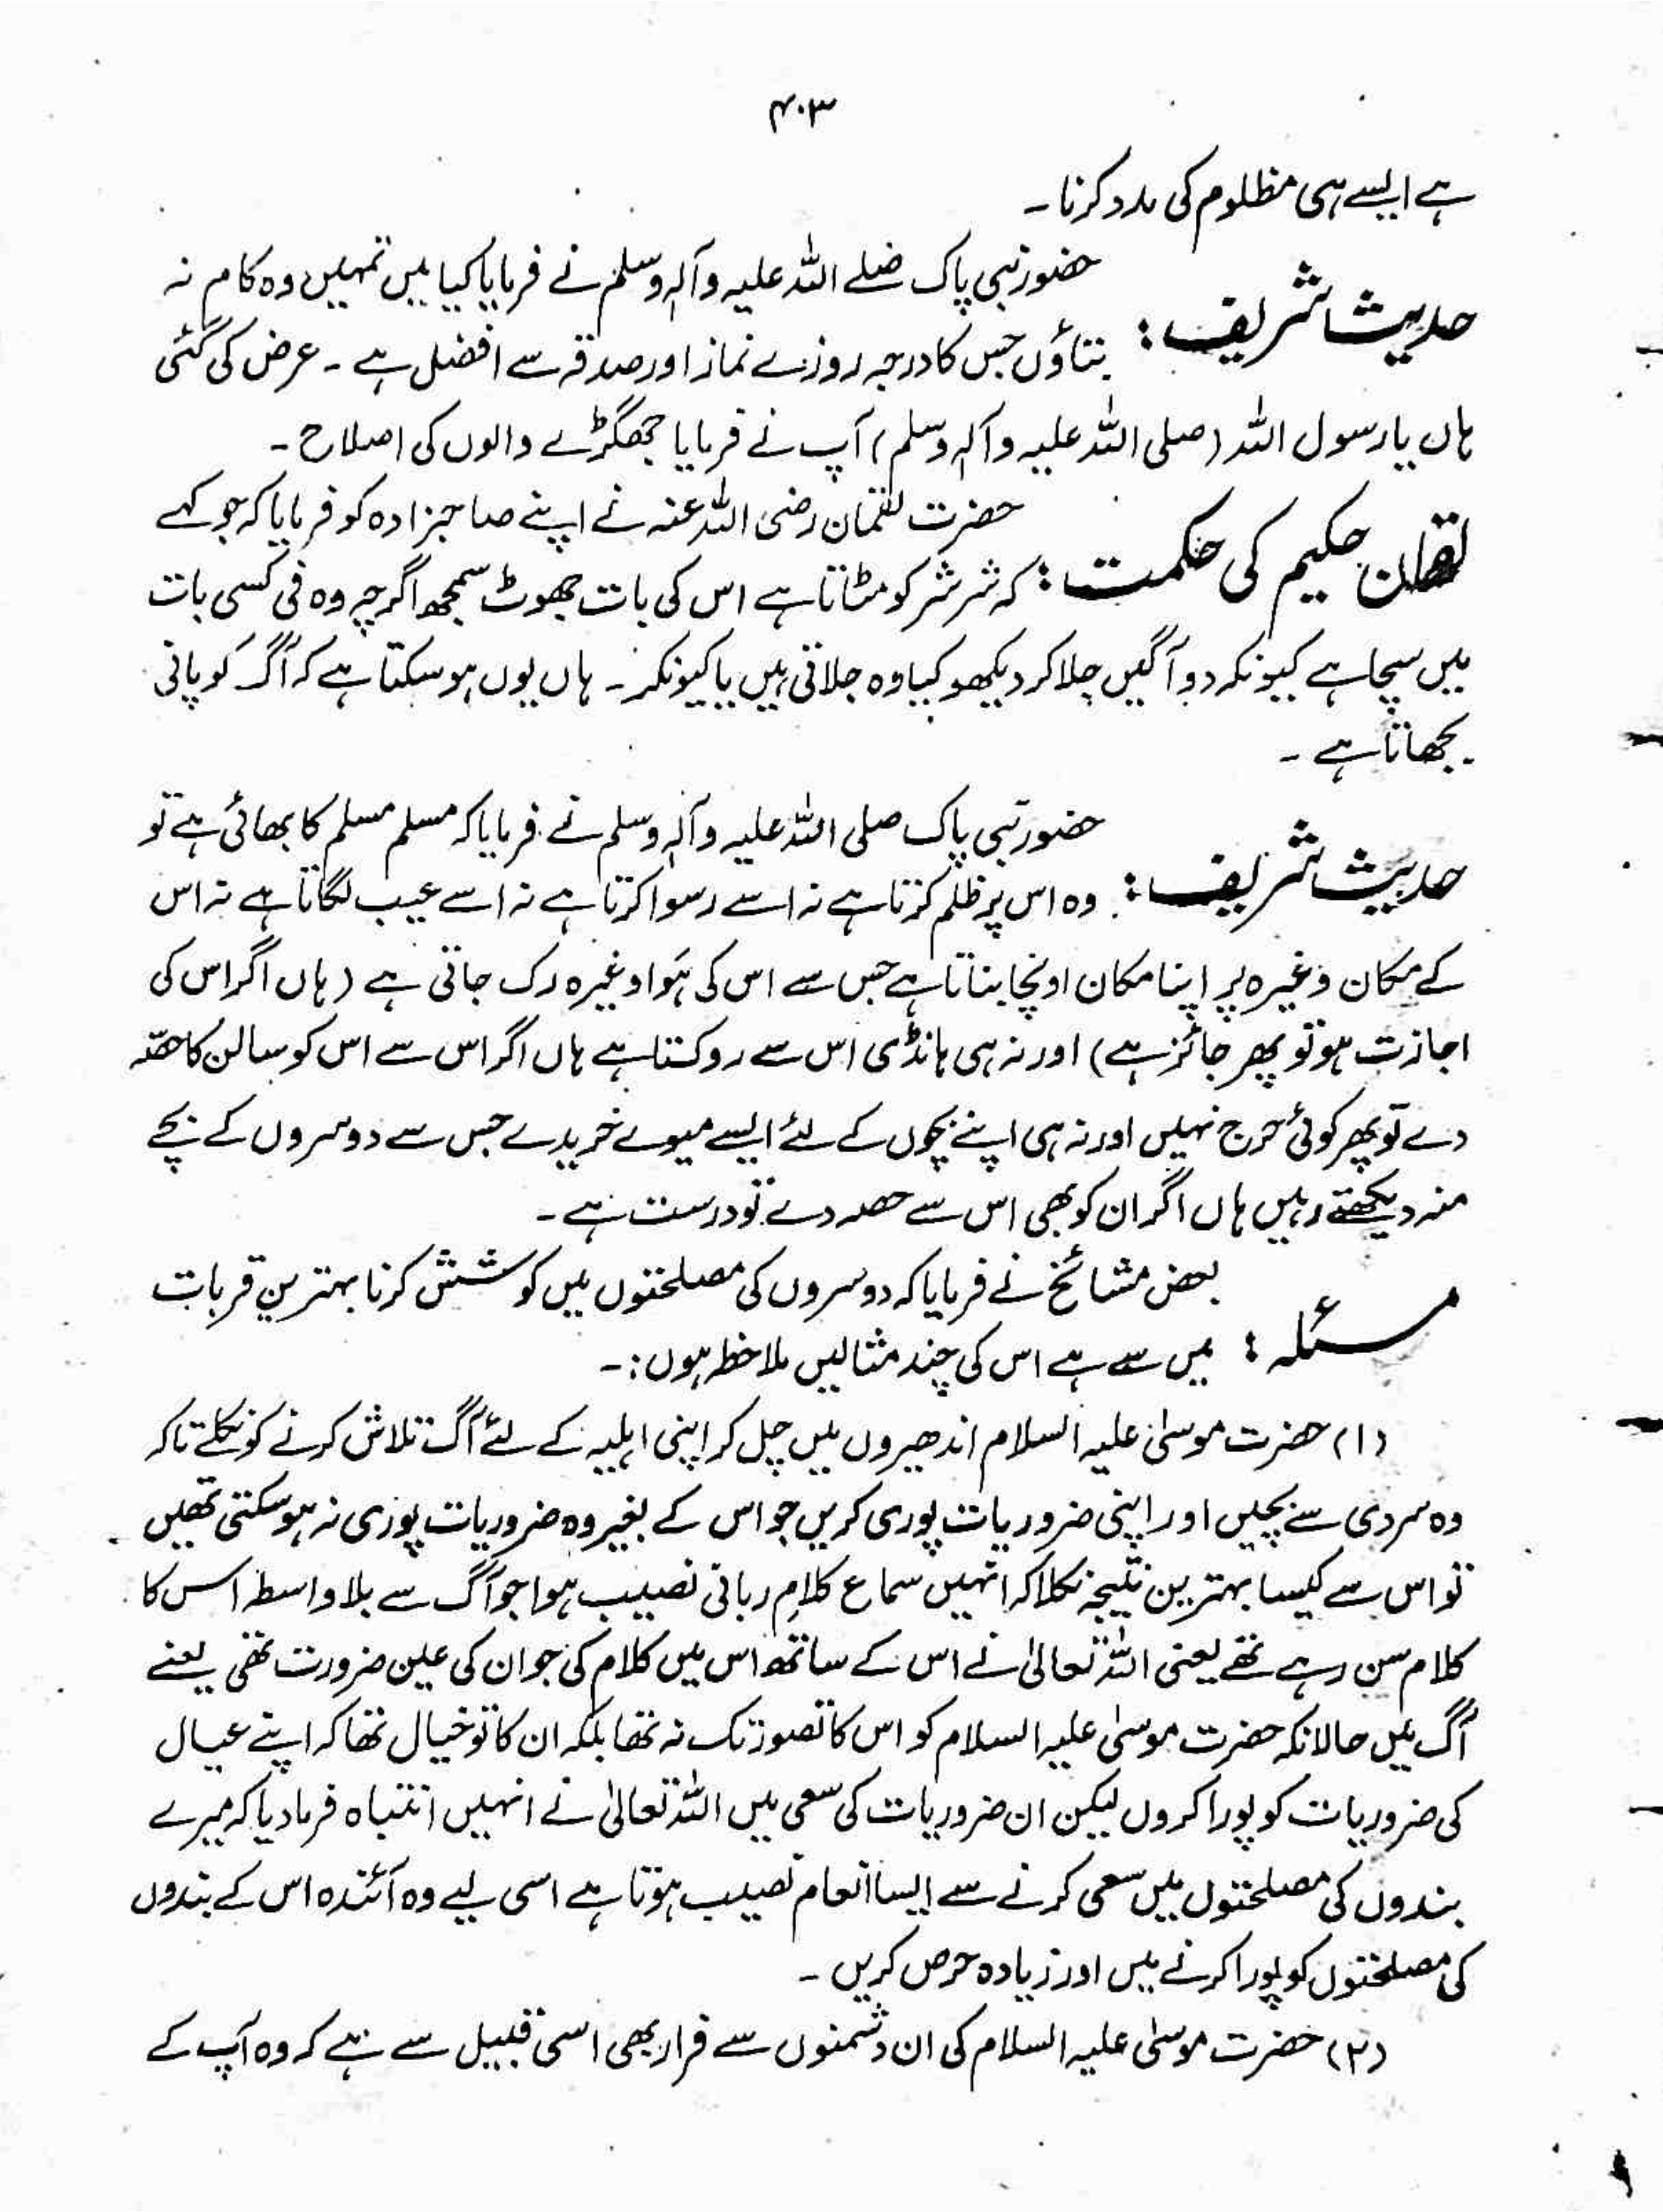 ۴۰۳
ہے ایسے ہی مظلوم کی مدد کرنا۔
حدیث شریف : حضور نبی پاک صلے اللہ علیہ وآلہٖ وسلم نے فرمایا کیا میں تمہیں وہ کام نہ
بتاؤں جس کا درجہ روزے نماز اور صدقہ سے افضل ہے۔ عرض کی گئی
ہاں یا رسول اللہ (صلی اللہ علیہ وآلہٖ وسلم) آپ نے فرمایا جھگڑے والوں کی اصلاح۔
لقمان حکیم کی حکمت : حضرت لقمان رضی اللہ عنہ نے اپنے صاحبزادہ کو فرمایا کہ جو کہے
کہ شر شر کو مٹاتا ہے اس کی بات جھوٹ سمجھ اگرچہ وہ فی کسی بات
میں سچا ہے کیونکہ دو آگیں جلا کر دیکھو کیا وہ جلاتی ہیں یا کیونکر۔ ہاں یوں ہو سکتا ہے کہ آگ کو پانی
بجھاتا ہے۔
حدیث شریف : حضور نبی پاک صلی اللہ علیہ وآلہٖ وسلم نے فرمایا کہ مسلم مسلم کا بھائی ہے تو
وہ اس پر ظلم کرتا ہے نہ اسے رسوا کرتا ہے نہ اسے عیب لگاتا ہے نہ اس
کے مکان وغیرہ پر اپنا مکان اونچا بناتا ہے جس سے اس کی ہَوا وغیرہ رک جاتی ہے (ہاں اگر اس کی
اجازت ہو تو پھر جائز ہے) اور نہ ہی ہانڈی اس سے روکتا ہے ہاں اگر اس سے اس کو سالن کا حصّہ
دے تو پھر کوئی حرج نہیں اور نہ ہی اپنے بچوں کے لئے ایسے میوے خریدے جس سے دوسروں کے بچے
منہ دیکھتے رہیں ہاں اگر ان کو بھی اس سے حصہ دے تو درست ہے۔
مسئلہ : بعض مشائخ نے فرمایا کہ دوسروں کی مصلحتوں میں کوشش کرنا بہترین قربات
میں سے ہے اس کی چند مثالیں ملاحظہ ہوں :۔
(۱) حضرت موسیٰ علیہ السلام اندھیروں میں چل کر اپنی اہلیہ کے لئے آگ تلاش کرنے کو نکلے تاکہ
وہ سردی سے بچیں اور اپنی ضروریات پوری کریں جو اس کے بغیر وہ ضروریات پوری نہ ہو سکتی تھیں
تو اس سے کیسا بہترین نتیجہ نکلا کہ انہیں سماع کلامِ ربانی نصیب ہوا جو آگ سے بلا واسطہ اس کا
کلام سن رہے تھے یعنی اللہ تعالیٰ نے اس کے ساتھ اس میں کلام کی جو ان کی عین ضرورت تھی یعنے
آگ میں حالانکہ حضرت موسیٰ علیہ السلام کو اس کا تصور تک نہ تھا بلکہ ان کا تو خیال تھا کہ اپنے عیال
کی ضروریات کو پورا کروں لیکن ان ضروریات کی سعی میں اللہ تعالیٰ نے انہیں انتباہ فرما دیا کہ میرے
بندوں کی مصلحتوں میں سعی کرنے سے ایسا انعام نصیب ہوتا ہے اسی لیے وہ آئندہ اس کے بندوں
کی مصلحتوں کو پورا کرنے میں اور زیادہ حرص کریں۔
(۲) حضرت موسیٰ علیہ السلام کی ان دشمنوں سے فرار بھی اسی قبیل سے ہے کہ وہ آپ کے